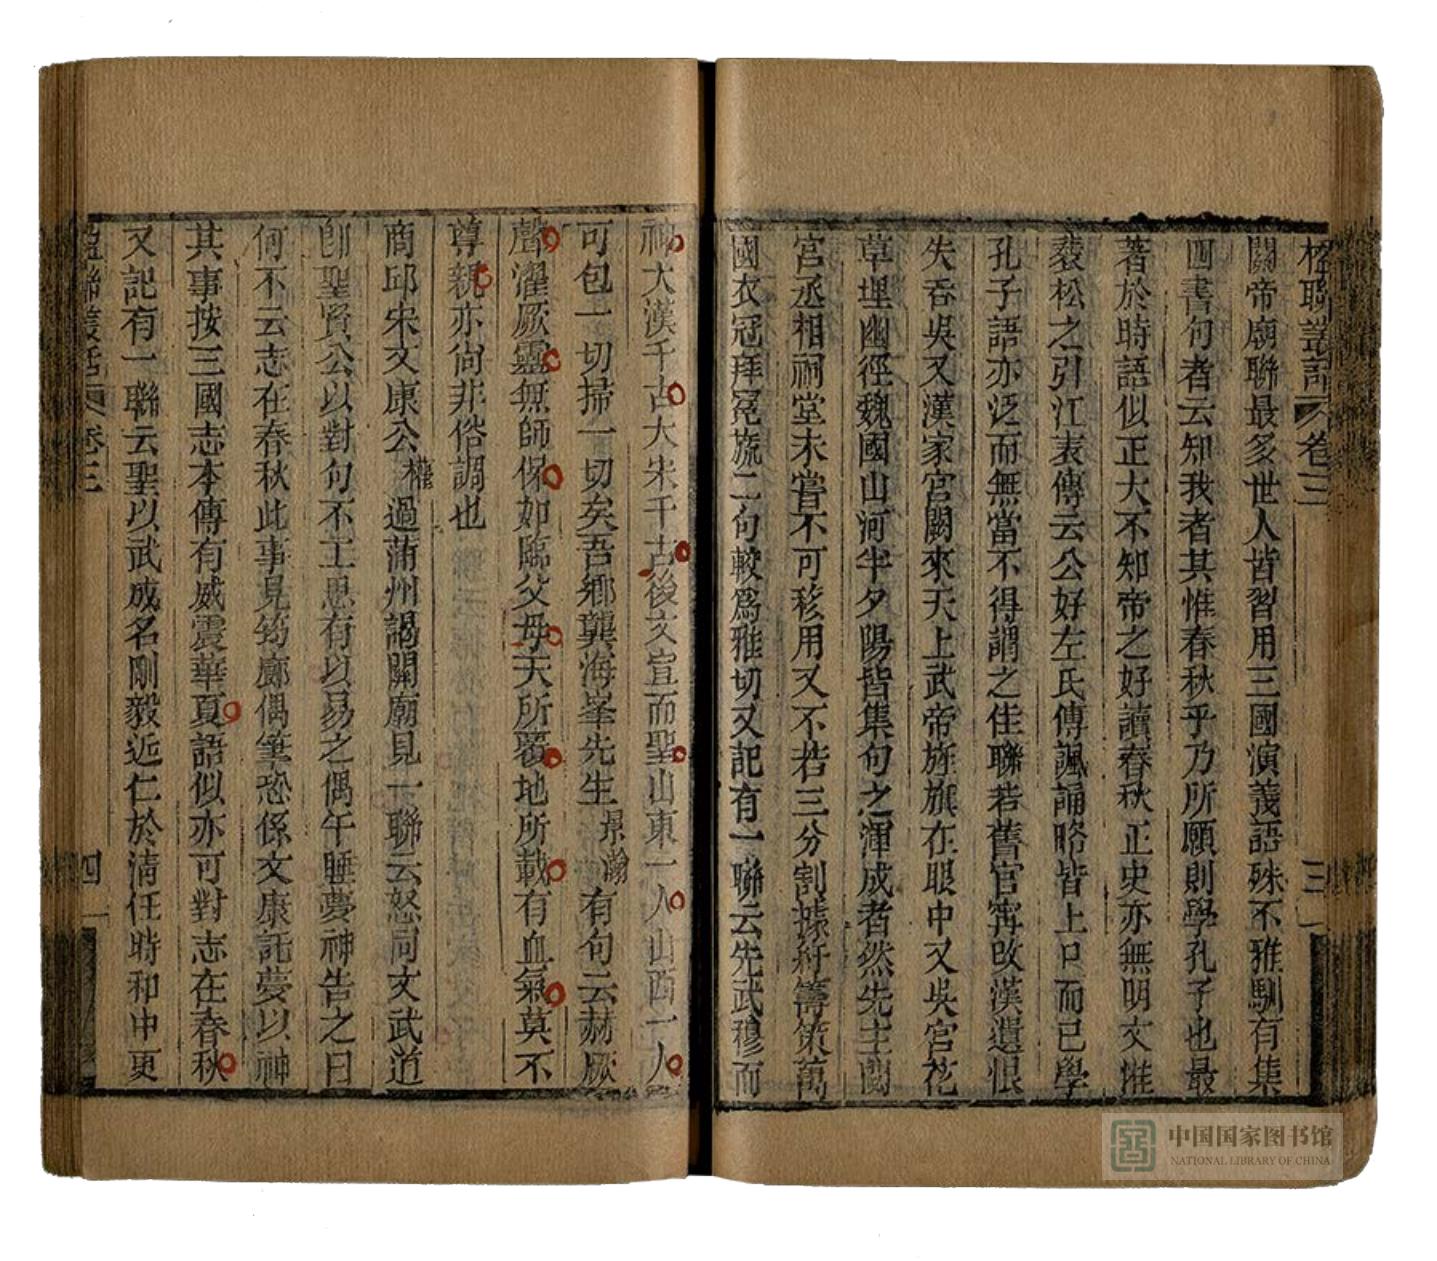 楹聯叢話 卷三 三
關帝廟聯最多世人皆習用三國演義語殊不雅馴有集
四書句者云知我者其惟春秋乎乃所願則學孔子也最
著於時語似正大不知帝之好讀春秋正史亦無明文惟
裴松之引江表傳云公好左氏傳諷誦略皆上口而已學
孔子語亦泛而無當不得謂之佳聯若舊官寗改漢遺恨
失吞吳又漢家宮闕來天上武帝旌旗在眼中又吳宮花
草埋幽徑魏國山河半夕陽皆集句之渾成者然先主園
宮丞相祠堂未嘗不可移用又不若三分割據紆籌策萬
國衣冠拜冕旒二句較爲雅切又記有一聯云先武穆而
神大漢千古大宋千古後文宣而聖山東一人山西一人
可包一切掃一切矣吾鄉龔海峯先生景瀚有句云赫厥
聲濯厥靈無師保如臨父母天所覆地所載有血氣莫不
尊親亦尚非俗調也
商邱宋文康公權過蒲州謁關廟見一聯云怒同文武道
卽聖賢公以對句不工思有以易之偶午睡夢神告之曰
何不云志在春秋此事見筠廊偶筆恐係文康託夢以神
其事按三國志本傳有威震華夏語似亦可對志在春秋
又記有一聯云聖以武成名剛毅近仁於清任時和中更
楹聯叢話 卷三 四
中国国家图书馆
NATIONAL LIBRARY OF CHINA